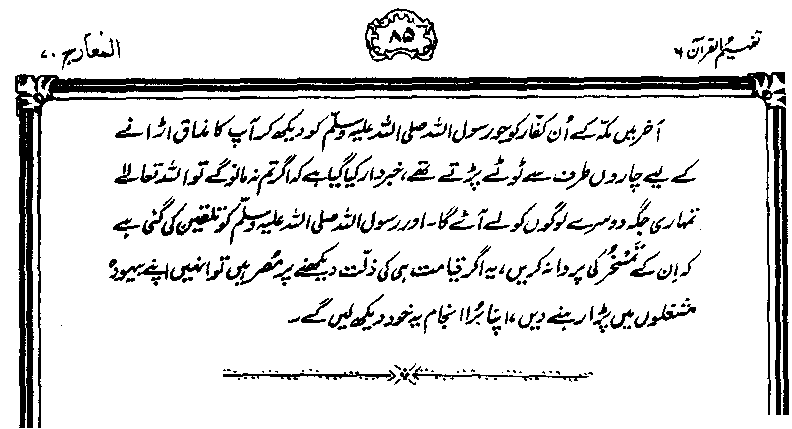 تفہیم القرآن ۶
۸۵
المعارج ۷۰
آخر میں مکہ کے اُن کفار کو جو رسول اللہ صلی اللہ علیہ وسلّم کو دیکھ کر آپ کا مذاق اڑانے
کے لیے چاروں طرف سے ٹوٹے پڑتے تھے، خبردار کیا گیا ہے کہ اگر تم نہ مانو گے تو اللہ تعالےٰ
تمہاری جگہ دوسرے لوگوں کو لے آئے گا۔ اور رسول اللہ صلی اللہ علیہ وسلّم کو تلقین کی گئی ہے
کہ اِن کے تمَسْخُر کی پروا نہ کریں، یہ اگر قیامت ہی کی ذلّت دیکھنے پر مُصر ہیں تو انہیں اپنے بیہودہ
مشغلوں میں پڑا رہنے دیں، اپنا بُرا انجام یہ خود دیکھ لیں گے۔